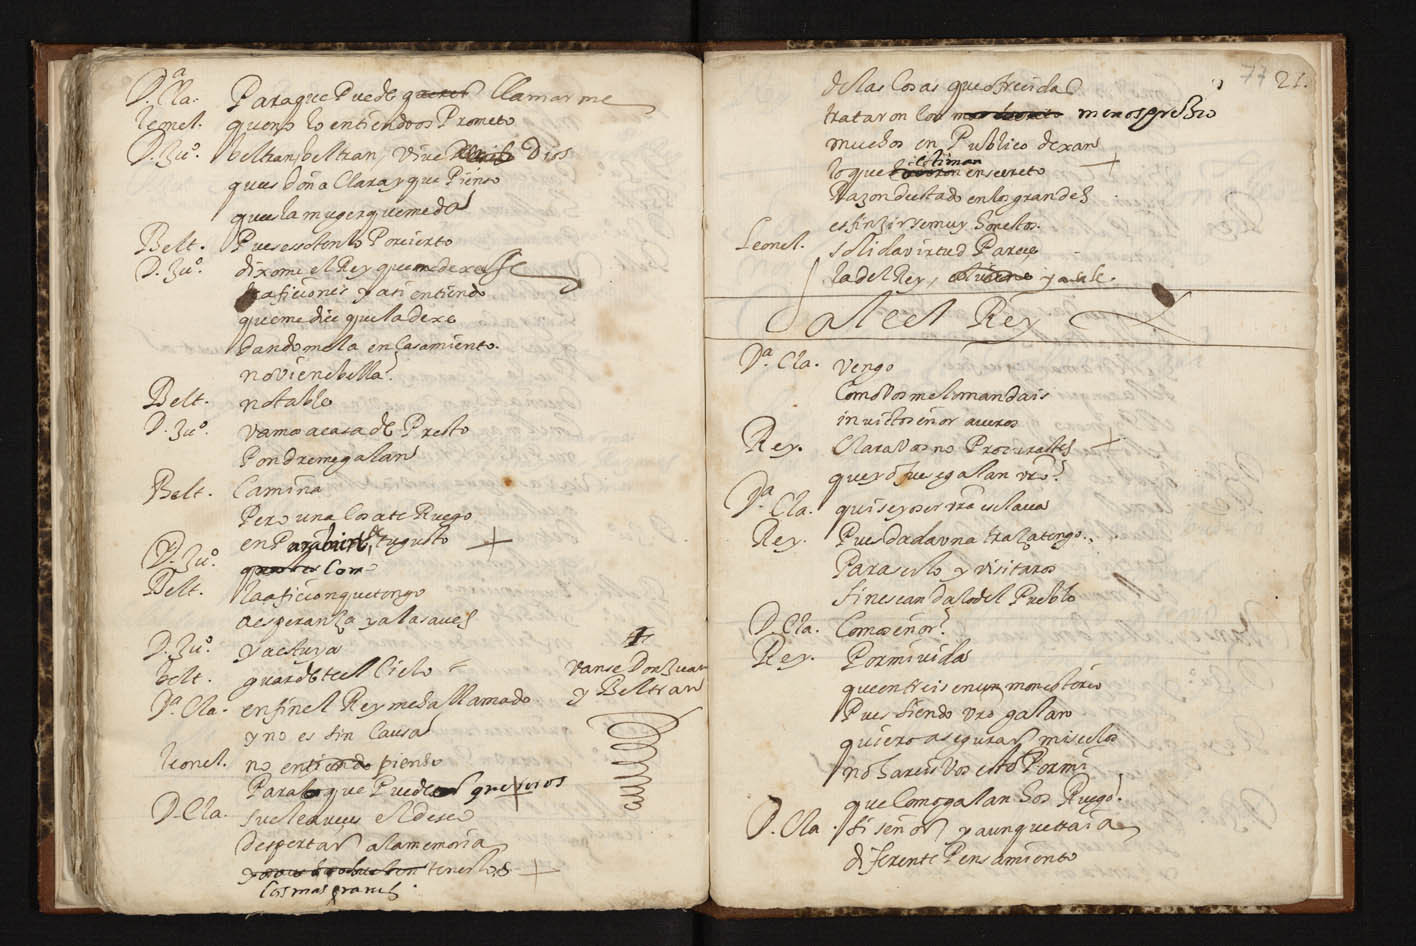 D.ª Cla. Paraque Puede querer llamarme
leonel. que no lo entiendo os Prometo
D. Juº. beltran, beltran, vive Dios
que es doña Clara y que Pienso
que es la muger que me da
Belt. Pues esso ten lo Por cierto
D. Juº. dixome el Rey que me dexasse
aficiones y asi entiendo
que me dice que la dexe
dandomela en Casamiento.
no viene bella?
Belt. notable
D. Juº. vamos a casa de Presto
Pondreme galan
Belt. Camina
Pero una Cosa te Ruego
D. Juº. en Parabien de tu gusto
Con
Belt. la aficion que tengo
a esperanza y a las aves
D. Juº. y a estuya
belt. guardete el Cielo
vanse Don Juan
y Beltran
D.ª Cla. en fin el Rey me da llamado
y no es sin Causa
leonel. no entiendo pienso
Para lo que Puede
D. Cla. suele a veces el deseo
despertar a la memoria
tenerlos
los mas graves.
77 21.
de las Cosas que ofrecidas
trataron con menosprecio
muchos en Publico dexan
lo que estiman en secreto
Razon de estado en los grandes
es finjirse muy honestos.
Leonel. solida virtud Parece
la del Rey, y a sale.
Sale el Rey
D.ª Cla. vengo
Como vos me lo mandais
invicto señor a veros
Rey. Clara vos no Procurastes
que yo fuese galan vro?
D.ª Cla. quise yo ser vra esclava
Rey. Pues dada una traza tengo
Para serlo y visitaros
sin escandalo del Pueblo
D. Cla. Como señor?
Rey. Por mi vida
que entreis en un monesterio
Pues siendo vro galan
quiero asegurar mis celos
no hareis vos esto Por mi
que Como galan hos Ruego?
D. Cla. si señor y aunque traia
diferente Pensamiento